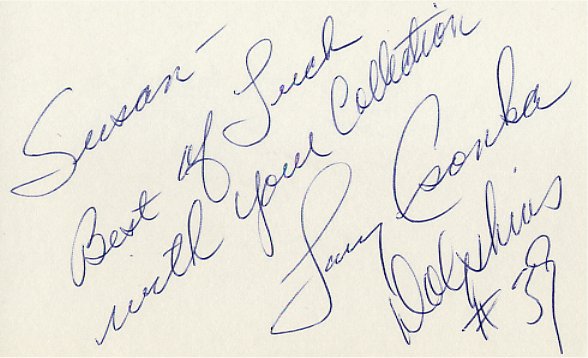 Susan-
Best of Luck
with your Collection
Larry Csonka
Dolphins
#39